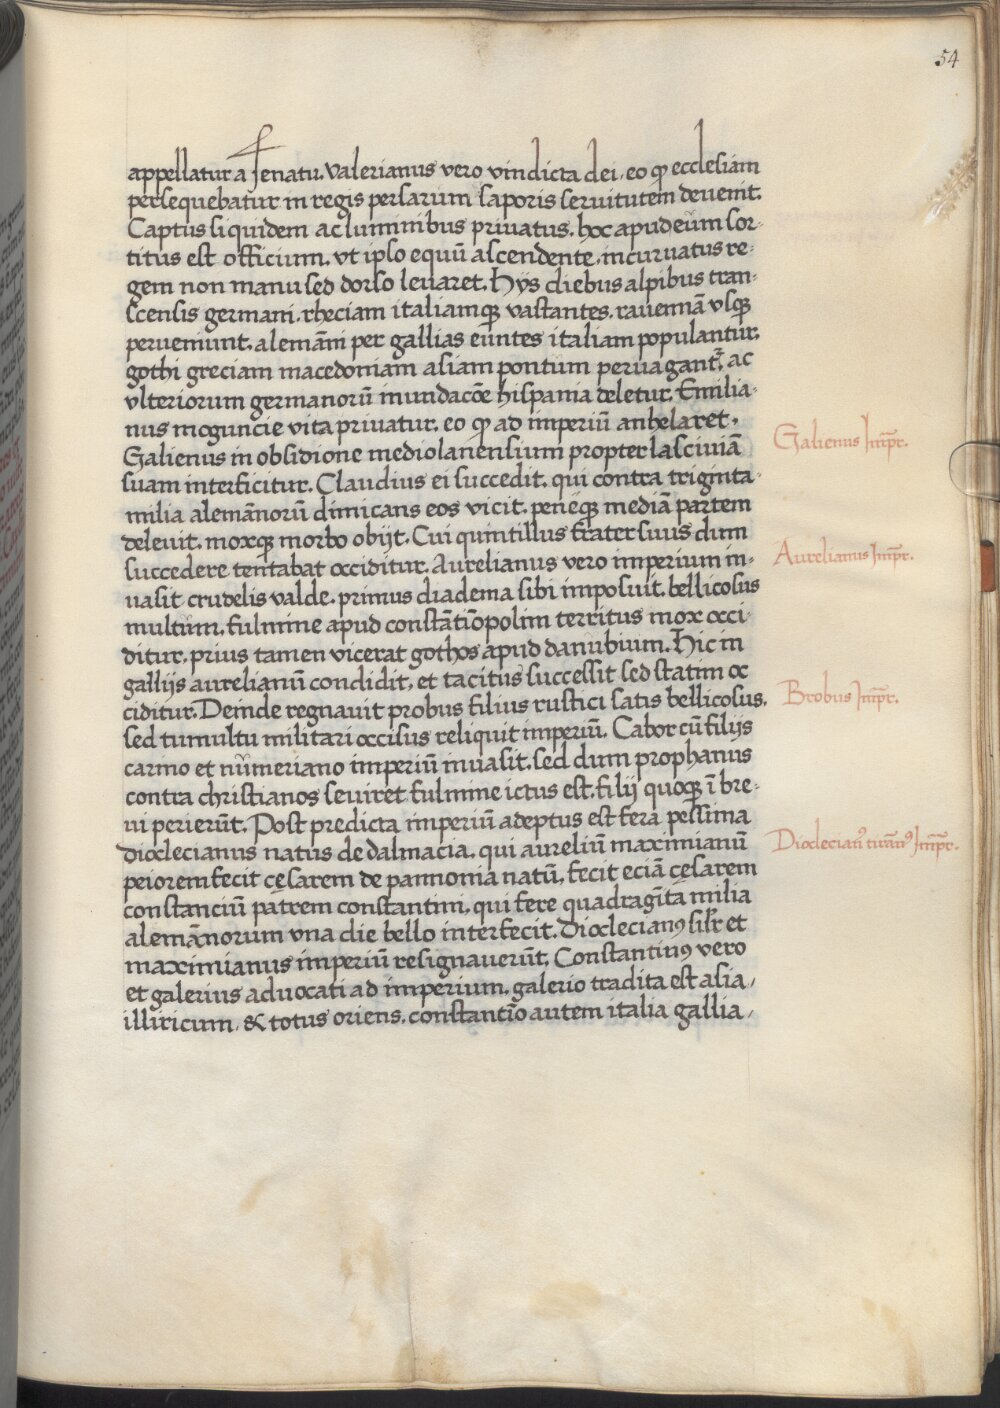 54
appellatur a senatu. Valerianus vero vindicta dei, eo qꝫ ecclesiam
persequebatur in regis persarum saporis seruitutem deuenit.
Captus siquidem ac luminibus priuatus, hoc apud eum sor-
titus est officium, vt ipso equū ascendente, incuruatus re-
gem non manu sed dorso leuaret. Hys diebus alpibus tran-
scensis germani, rheciam italiamqꝫ vastantes, rauennā vsqꝫ
perueniunt, alemāni per gallias euntes italiam populantur,
gothi greciam macedoniam asiam pontum peruagantᷣ, ac
vlteriorum germanorū inundacōe hispania deletur. Emilia-
nus moguncie vita priuatur, eo qꝫ ad imperiū anhelaret.
Galienus in obsidione mediolanensium propter lasciuiā
suam interficitur. Claudius ei succedit, qui contra triginta
milia alemānorū dimicans eos vicit, peneqꝫ mediā partem
deleuit, moxqꝫ morbo obijt. Cui quintillus frater suus dum
succedere tentabat occiditur. Aurelianus vero imperium in-
uasit crudelis valde, primus diadema sibi imposuit, bellicosus
multum, fulmine apud constātiōpolim territus mox occi-
ditur, prius tamen vicerat gothos apud danubium. Hic in
gallijs aurelianū condidit, et tacitus successit sed statim oc
ciditur. Deinde regnauit probus filius rustici satis bellicosus,
sed tumultu militari occisus reliquit imperiū. Cabor cū filijs
carino et nūmeriano imperiū inuasit, sed dum prophanus
contra christianos seuiret fulmine ictus est, filij quoqꝫ ī bre-
ui perierūt. Post predicta imperiū adeptus est fera pessima
dioclecianus natus de dalmacia, qui aureliū maximianū
peiorem fecit cęsarem de pannonia natū, fecit eciā cęsarem
constanciū patrem constantini, qui fere quadragīta milia
alemānorum vna die bello interfecit. Dioclecianꝰ silr et
maximianus imperiū resignauerūt. Constantiuꝰ vero
et galerius aduocati ad imperium, galerio tradita est asia,
illiricum, & totus oriens, constantīo autem italia gallia,
Galienus Imꝑr.
Aurelianus Imꝑr.
Brobus Imꝑr.
Dioclecianꝰ tirānꝰ Imꝑr.